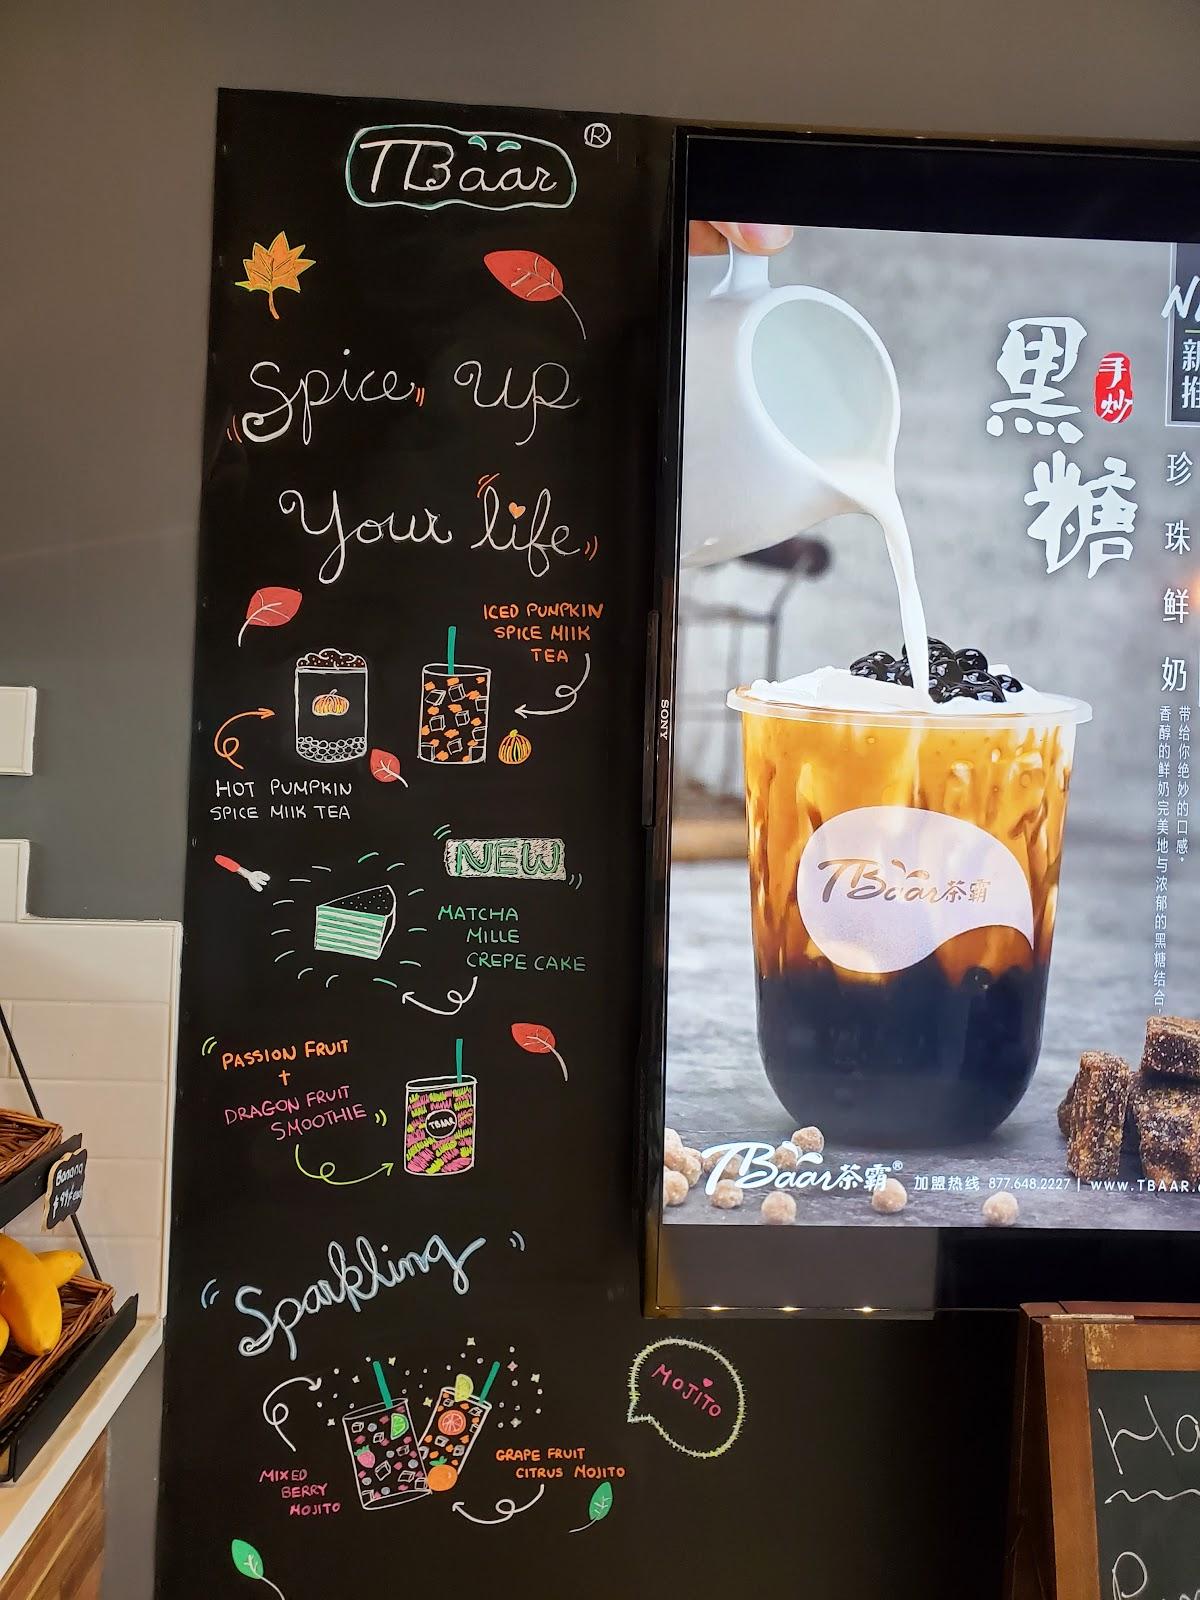 TBaar ®
Spice Up
Your life
ICED PUMPKIN
SPICE MIlK
TEA
HOT PUMPKIN
SPICE MIlK TEA
NEW
MATCHA
MILLE
CREPE CAKE
PASSION FRUIT
+
DRAGON FRUIT
SMOOTHIE
TBAAR
Sparkling
MOJITO
MIXED
BERRY
MOJITO
GRAPE FRUIT
CITRUS MOJITO
Banana
SONY
黑糖
手炒
新推
珍珠鲜奶
带给你绝妙的口感。
香醇的鲜奶完美地与浓郁的黑糖结合,
TBaar茶霸
TBaar茶霸® 加盟热线 877.648.2227 | WWW.TBAAR.